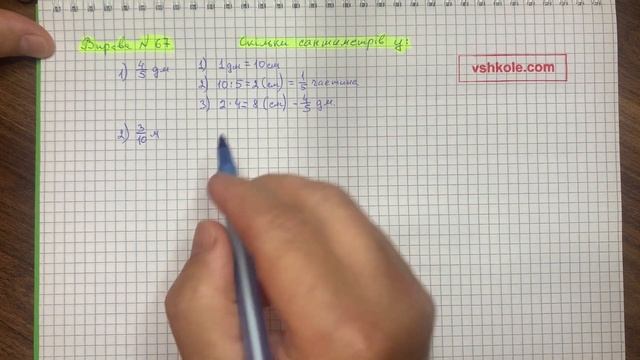 Вправа №67 Скільки сантиметрів у:
1) 4/5 дм 1) 1 дм = 10 см
2) 10 : 5 = 2 (см) = 1/5 частина
3) 2 · 4 = 8 (см) - 4/5 дм.
2) 3/10 м
vshkole.com